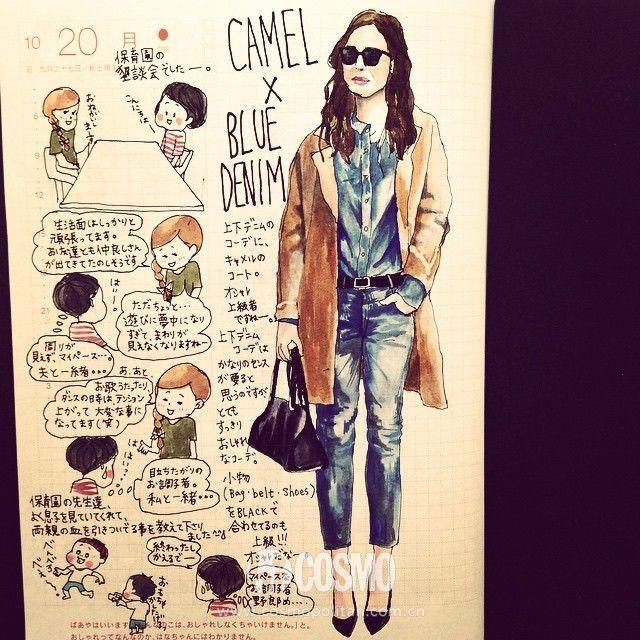 10 20 月
保育園の
懇談会でしたー。
おねがい
します
こんにちは
生活面はしっかりと
頑張ってます。
お友達とも仲良しさん
が出てきてたのしそうです
はいー。
ただちょっと…
遊びに夢中になり
すぎて まわりが
見えなくなりますねー
周りが
見えず、マイペース…。
夫と一緒…
あ、あと
お歌うたったり、
ダンスの日は、テンション
上がって 大変な事に
なってます(笑)
はは
目立ちたがりの
お調子者。
私と一緒…
保育園の先生達、
よく息子を見ていてくれて、
両親の血を引きついでる事を教えて下さり
ました
終わったし
かえるでー
マイペースな
お調子者
野郎め…
CAMEL
×
BLUE
DENIM
上下デニムの
コーデに、
キャメルの
コート。
オシャレ
上級者
ですねー。
上下デニム
コーデは
かなりのセンス
が要ると
思うのですが
とても
すっきり
おしゃれ
なコーデ。
小物
(Bag・belt・shoes)
をBLACKで
合わせてるのも
上級!!!
オシャレだなー。
COSMO
www.cosmopolitan.com.cn
ばあやはいいます。「おんなのこは、おしゃれしなくちゃいけません。」と。
おしゃれってなんなのか、はなちゃんにはわかりません。